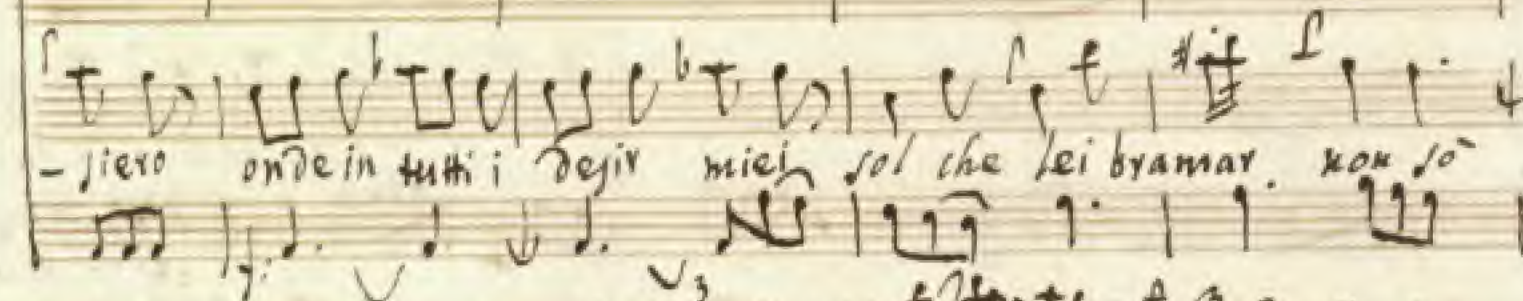 -siero onde in tutti i desir miei sol che lei bramar non sò